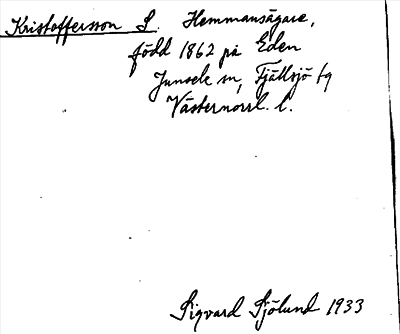 Kristoffersson S. Hemmansägare,
född 1862 på Eden
Junsele sn, Fjällsjö tg
Västernorrl. l.
Sigvard Sjölund 1933